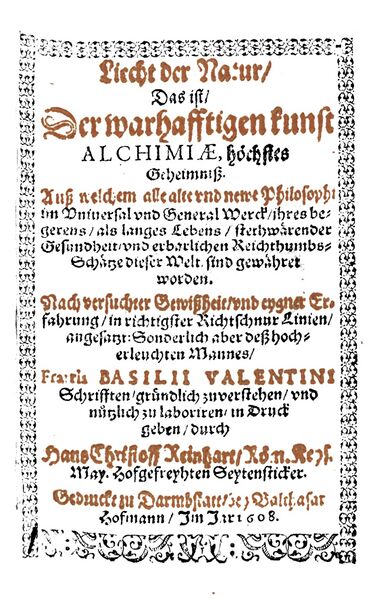 Liecht der Natur/
Das ist/
Der warhafftigen kunst
ALCHIMIÆ, höchstes
Geheimniß.
Auß welchem alle alte vnd newe Philosophi
im Vniuersal vnd General Werck/ ihres be-
gerens/ als langes Lebens/ sterhwärender
Gesundheit/ vnd erbarlichen Reichthumbs-
Schätze dieser Welt, sind gewähret
worden.
Nach versuchter Gewißheit/ vnd eygner Er-
fahrung/ in richtigster Richtschnur Linien/
angesatzt: Sonderlich aber deß hoch-
erleuchten Mannes/
Fratris BASILII VALENTINI
Schrifften/ gründlich zuverstehen/ vnd
nützlich zu laboriren/ in Druck
geben/ durch
Hans Christoff Reinhart/ Röm. Keys.
May. Hofgefreyhten Seytensticker.
Gedruckt zu Darmbstatt/ bey Balthasar
Hofmann/ Im Jar 1608.